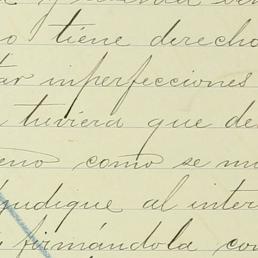 o tiene derecho
tar inperfecciones
tuviera que de
eno como se m
judique al inter
firmándola con